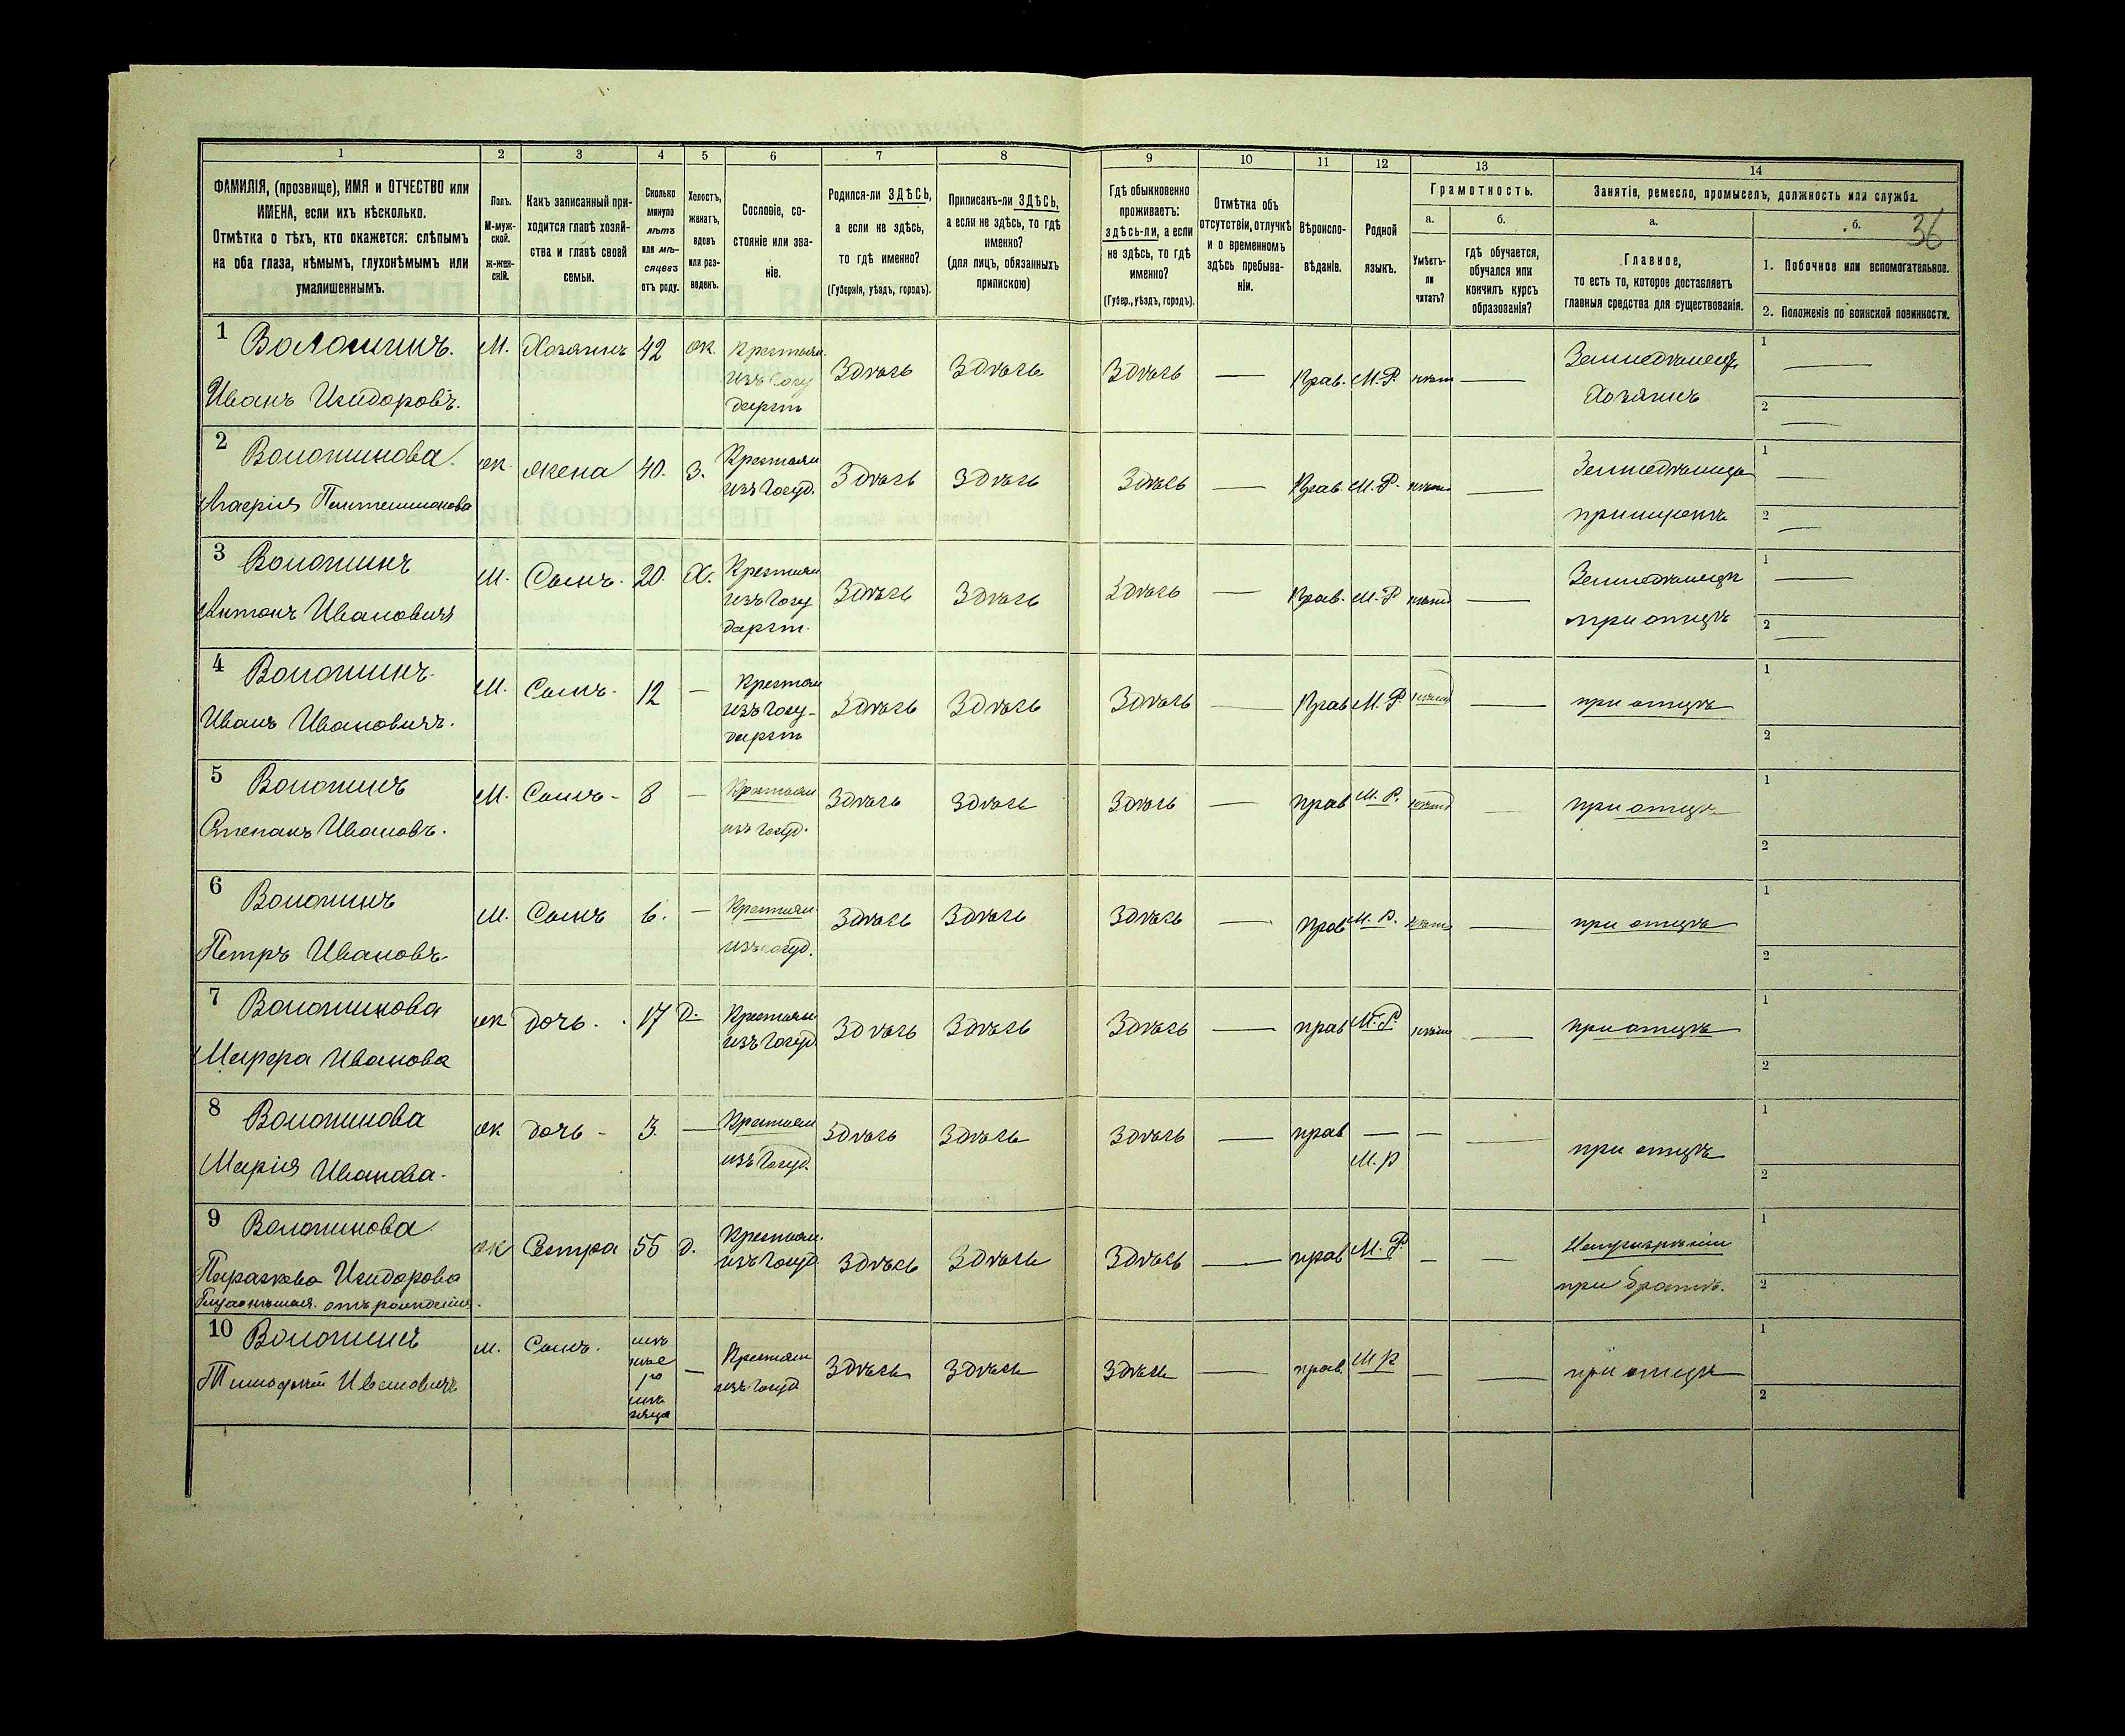 36
1 2 3 4 5 6 7 8 9 10 11 12 13 14
ФАМИЛІЯ, (прозвище), ИМЯ и ОТЧЕСТВО или
ИМЕНА, если ихъ нѣсколько.
Отмѣтка о тѣхъ, кто окажется: слѣпымъ
на оба глаза, нѣмымъ, глухонѣмымъ или
умалишеннымъ.
Полъ.
М-муж-
ской.
ж-жен-
скій.
Какъ записанный при-
ходится главѣ хозяй-
ства и главѣ своей
семьи.
Сколько
минуло
лѣтъ
или мѣ-
сяцевъ
отъ роду.
Холостъ,
женатъ,
вдовъ
или раз-
веденъ.
Сословіе, со-
стояніе или зва-
ніе.
Родился-ли ЗДѢСЬ,
а если не здѣсь,
то гдѣ именно?
(Губернія, уѣздъ, городъ).
Приписанъ-ли ЗДѢСЬ,
а если не здѣсь, то гдѣ
именно?
(для лицъ, обязанныхъ
припискою)
Гдѣ обыкновенно
проживаетъ:
здѣсь-ли, а если
не здѣсь, то гдѣ
именно?
(Губер., уѣздъ, городъ).
Отмѣтка объ
отсутствіи, отлучкѣ
и о временномъ
здѣсь пребыва-
ніи.
Вѣроиспо-
вѣданіе.
Родной
языкъ.
Грамотность.
а.
Умѣетъ-
ли
читать?
б.
гдѣ обучается,
обучался или
кончилъ курсъ
образованія?
Занятіе, ремесло, промыселъ, должность или служба.
а.
Главное,
то есть то, которое доставляетъ
главныя средства для существованія.
б.
1. Побочное или вспомогательное.
2. Положеніе по воинской повинности.
1 Волошинъ. М. Хозяинъ 42 ж. Крестьян. Здѣсь Здѣсь Здѣсь — Прав. М.Р. нѣт — Земледѣлецъ 1 —
Иванъ Исидоровъ. изъ Госу
дарст Хозяинъ 2 —
2 Волошинова. ж. жена 40. З. Крестьян Здѣсь Здѣсь Здѣсь — Прав. М.Р. — 1 —
изъ Госуд. при мужѣ 2 —
3 Волошинъ М. Сынъ. 20. Х. Крестьян Здѣсь Здѣсь Здѣсь — Прав. М.Р — Земледѣлецъ 1 —
Антонъ Ивановичъ изъ Госу
дарст. при отцѣ 2 —
4 Волошинъ. М. Сынъ. 12 — Крестьян Здѣсь Здѣсь Здѣсь — Прав М.Р. — при отцѣ 1
Иванъ Ивановичъ. изъ Госу-
дарст 2
5 Волошинъ М. Сынъ - 8 — Крестьян Здѣсь Здѣсь Здѣсь — прав М.Р. — при отцѣ 1
Степанъ Ивановъ. изъ Госуд. 2
6 Волошинъ М. Сынъ 6. — Крестьян. Здѣсь Здѣсь Здѣсь — прав М.Р. — при отцѣ 1
Петръ Ивановъ. изъ Госуд. 2
7 Волошинова ж дочь. 17 д. Крестьян. Здѣсь Здѣсь Здѣсь — прав М.Р — при отцѣ 1
Иванова изъ Госуд. 2
8 Волошинова ж дочь - 3. — Крестьян Здѣсь Здѣсь Здѣсь — прав — — — при отцѣ 1
Марія Иванова. изъ Госуд. М.р 2
9 Волошинова ж Сестра 55 д. Крестьян. Здѣсь Здѣсь Здѣсь — прав М.Р. — — 1
Параскева Исидорова изъ Госуд. при братѣ. 2
отъ рожденія.
10 Волошинъ м. Сынъ. — Крестьян Здѣсь Здѣсь Здѣсь — прав. М р — — при отцѣ 1
Тимофей Ивановичъ изъ Госуд. 2